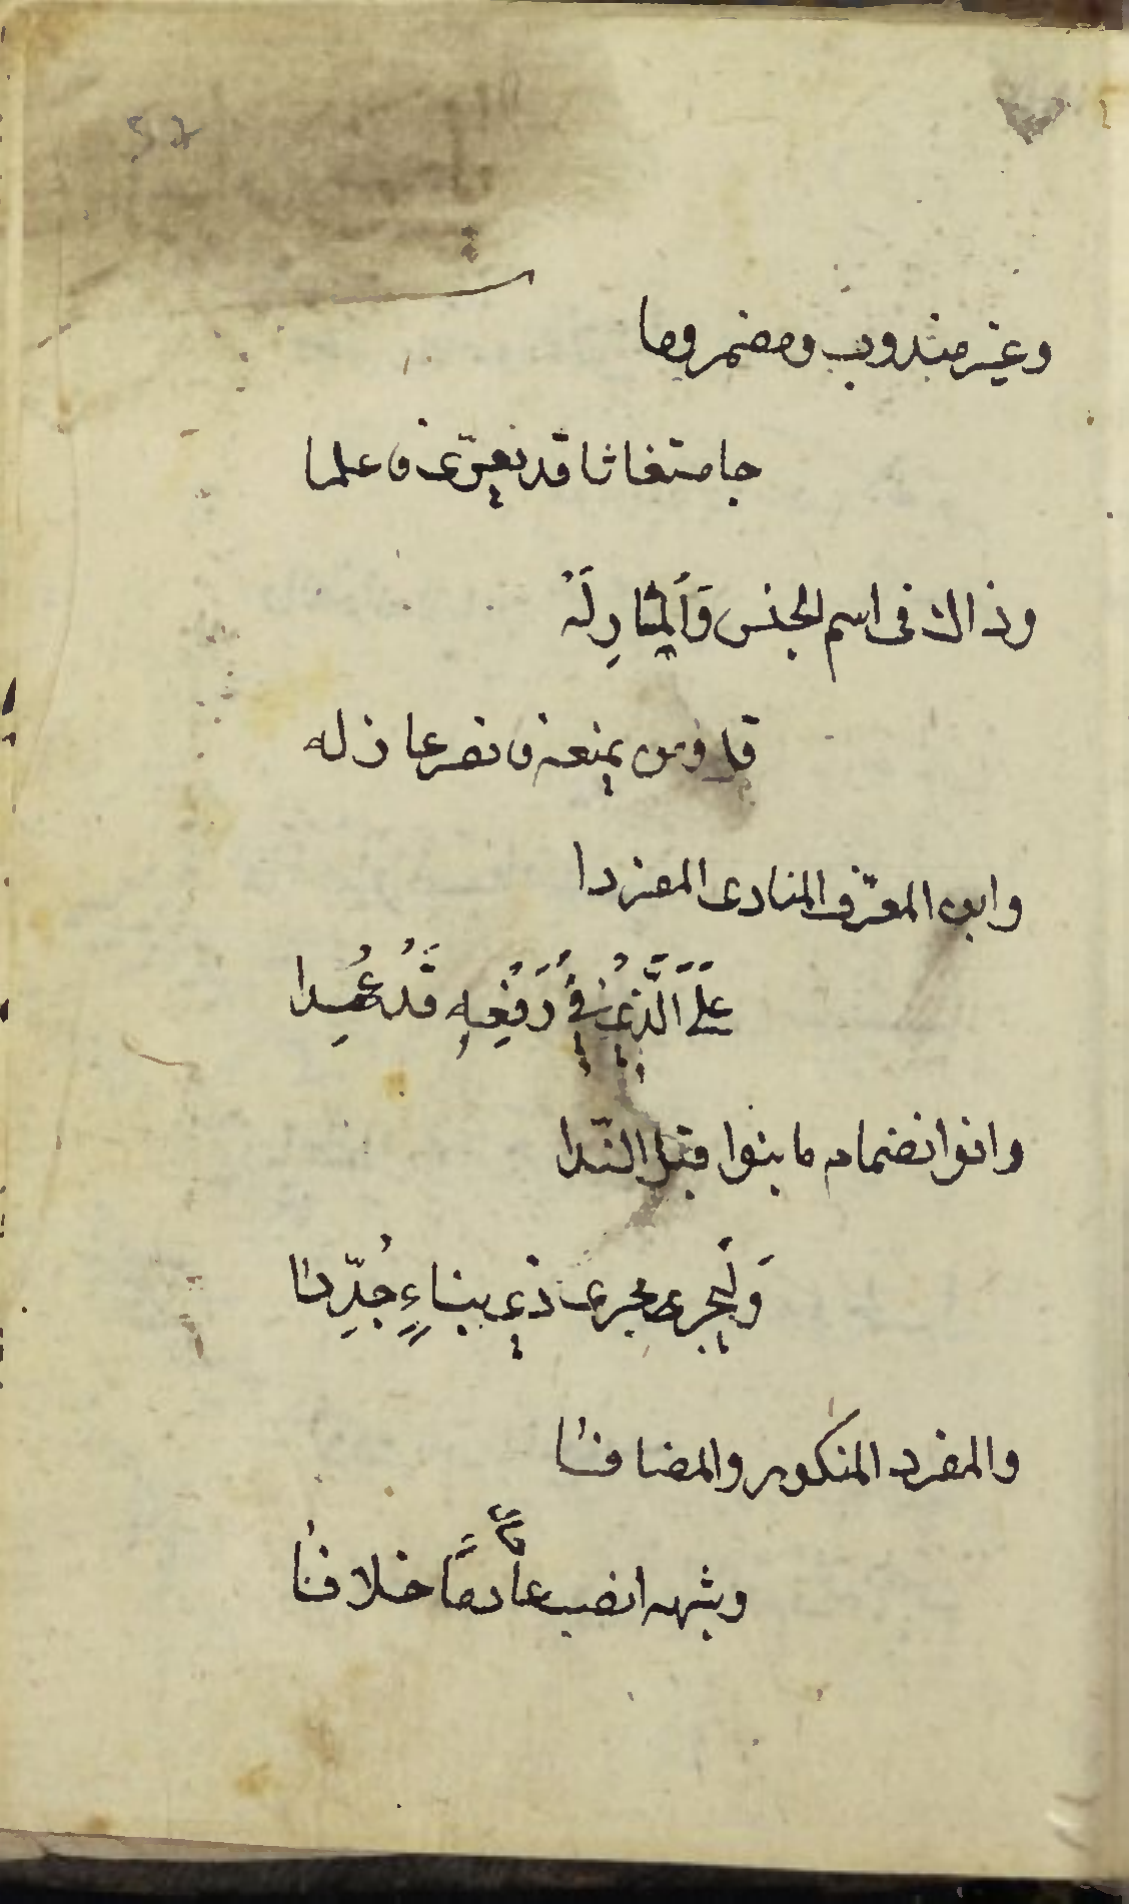 وغير مندوب ومضمر وما
جا مستغاثا قد يعرى فاعلما
وذاك فى اسم الجنس وَالمُشَارِ لَهْ
قل ومن يمنعه فانصر عاذله
وابن المعرّف المنادى المفردا
عَلَى الَّذِي فِي رَفْعِهِ قَدْ عُهِدا
وانو انضمام ما بنوا قبل النّدا
وَليُجرى مجرى ذي بناءٍ جُدِّدَا
والمفرد المنكور والمضافا
وشبهه انصب عادمًا خلافا